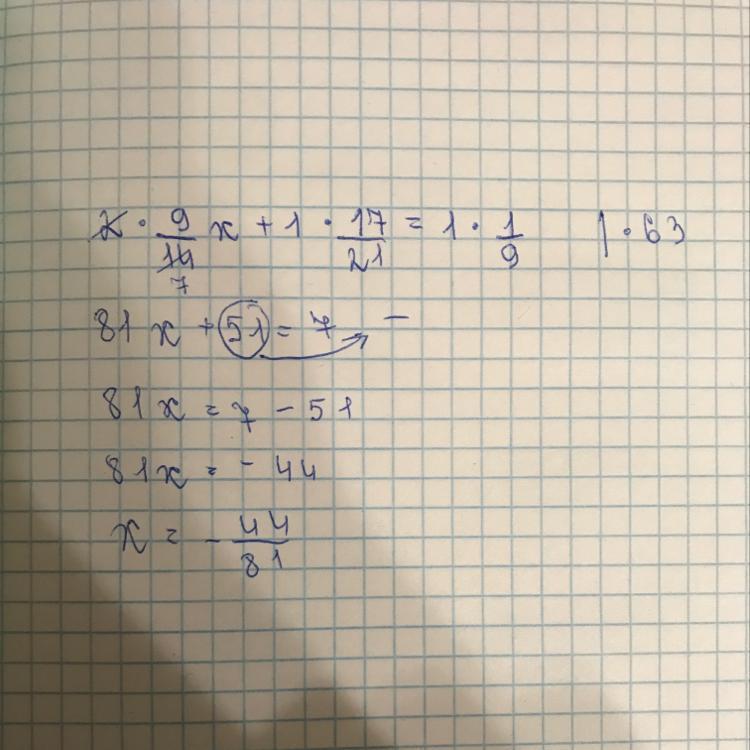 2 · 9/14 x + 1 · 17/21 = 1 · 1/9 | · 63
7
81 x + 51 = 7 −
81 x = 7 − 51
81x = − 44
x = − 44/81